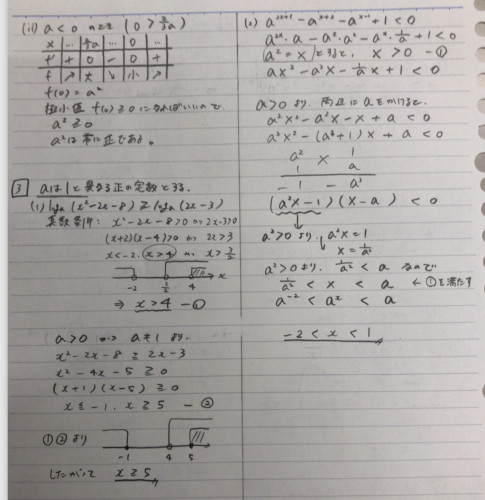 (ii) a < 0 のとき (0 > 2/3 a)
x … 2/3a … 0 …
f' + 0 − 0 +
f ↗ 大 ↘ 小 ↗
f(0) = a²
極小値 f(0) ≧ 0 になればいいので
a² ≧ 0
a²は常に正である。
3 aは1と異なる正の定数とする。
(1) loga (x²-2x-8) ≧ loga (2x-3)
真数条件: x²-2x-8>0 かつ 2x-3>0
(x+2)(x-4)>0 かつ 2x>3
x<-2, x>4 かつ x>3/2
-2 3/2 4 x
⇒ x>4 —①
a>0 かつ a≠1 より、
x²-2x-8 ≧ 2x-3
x²-4x-5 ≧ 0
(x+1)(x-5) ≧ 0
x ≦ -1, x ≧ 5 —②
①②より
-1 4 5
したがって x ≧ 5
(2) a^{2x+1} - a^{x+2} - a^{x-1} + 1 < 0
a^{2x}・a - a^x・a² - a^x・1/a + 1 < 0
(a^x = X)とすると、 X > 0 —①
aX² - a²X - 1/a X + 1 < 0
a>0 より 両辺に aをかけると、
a²X² - a³X - X + a < 0
a²X² - (a³+1)X + a < 0
a² 1
1 a
-1 - a³
(a²X-1)(X-a) < 0
a²>0 より a²X=1
X = 1/a²
a²>0より、 1/a² < a なので
1/a² < X < a ←①を満たす
a^{-2} < a^x < a
-2 < x < 1